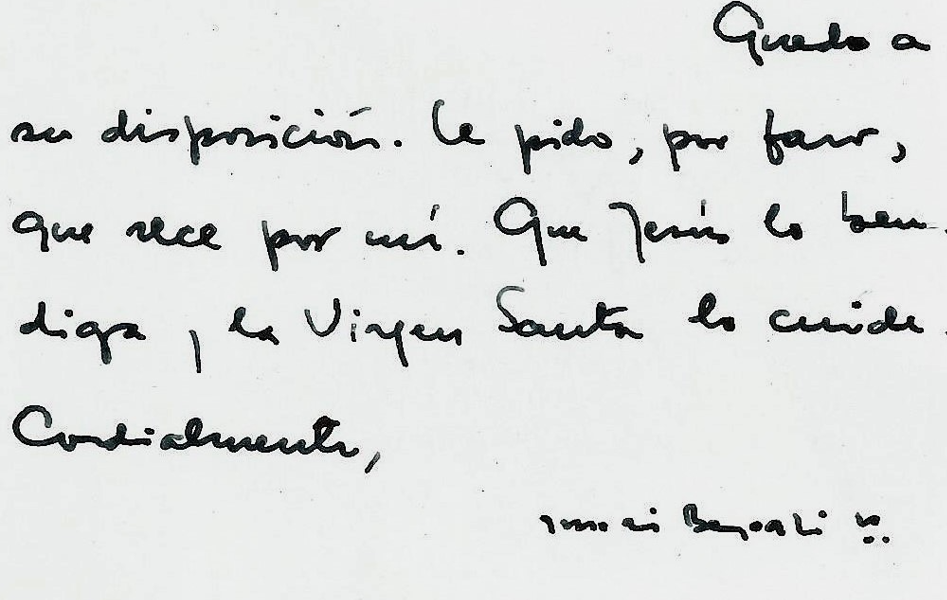 Quedo a
su disposición. Le pido, por favor,
que rece por mí. Que Jesús lo ben-
diga y la Virgen Santa lo cuide.
Cordialmente,
Bergoglio